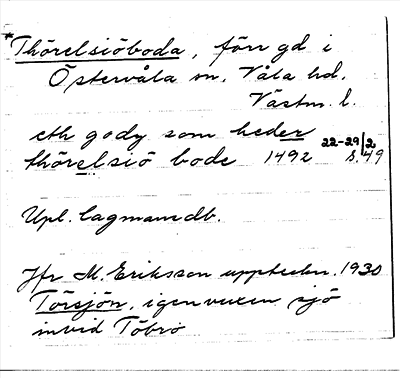 *Thörelsiöboda, förr gd i
Östervåla sn. Våla hd.
Västm. l.
eth gody som heder 22-29/2
thörelsiö bode 1492 s. 49
Upl. lagmansdb.
Jfr M. Eriksson uppteckn. 1930
Torsjön, igenvuxen sjö
invid Töbro